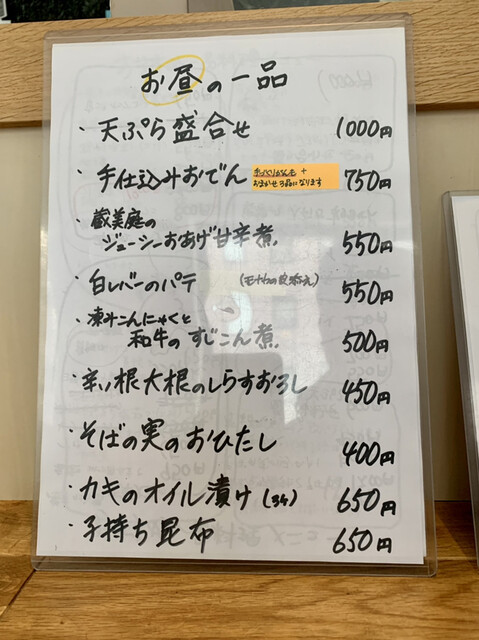 お昼の一品
・天ぷら盛合せ 1000円
・手仕込みおでん 750円
おまかせ3品になります
・蔵美庭の
ジューシーおあげ甘辛煮 550円
・白レバーのパテ 550円
・凍みこんにゃくと
和牛のすじこん煮 500円
・辛い根大根のしらすおろし 450円
・そばの実のおひたし 400円
・カキのオイル漬け 650円
・子持ち昆布 650円